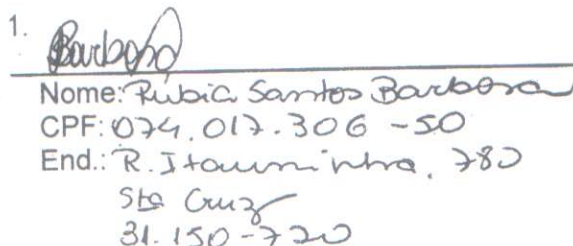 1.
Barbosa
Nome: Rúbia Santos Barbosa
CPF: 074.017.306-50
End.: R. Itauninha, 780
Sta Cruz
31.150-720